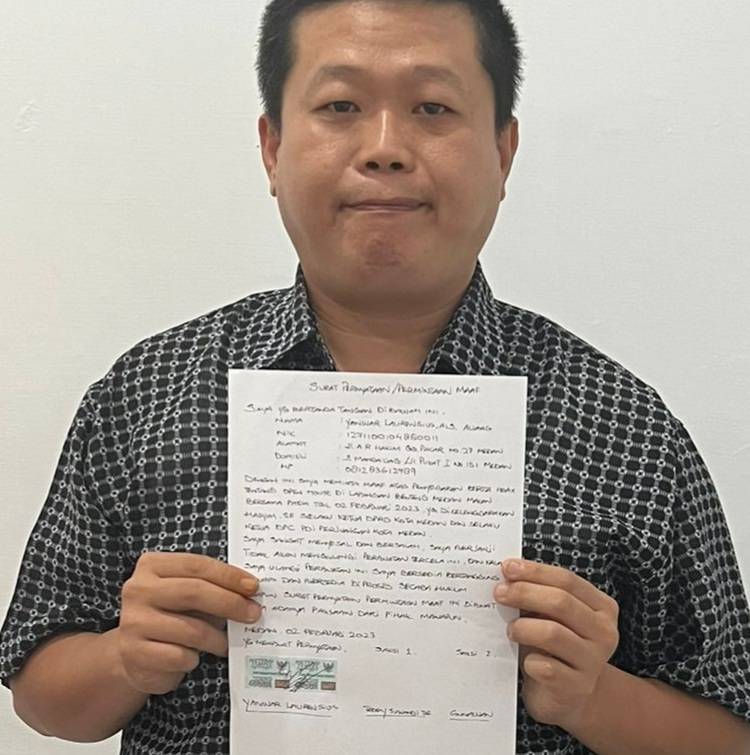 SURAT PERNYATAAN/PERMINTAAN MAAF
SAYA YG BERTANDA TANGAN DIBAWAH INI.
NAMA : YANWAR LAURENSIUS, ALS. AUANG
NIK : 1271100104860011
ALAMAT : JL. A.R HAKIM GG. PACAR NO. 27 MEDAN
DOMISILI : NO 151 MEDAN
HP : 081283612489
DENGAN INI SAYA MEMINTA MAAF ATAS PENYEBARAN BERITA HOAX
TENTANG OPEN HOUSE DI LAPANGAN BENTENG MEDAN MAKAN
BERSAMA PADA TGL 02 FEBRUARI 2023, YG DISELENGGARAKAN
HASYIM, SE SELAKU KETUA DPRD KOTA MEDAN DAN SELAKU
KETUA DPC PDI PERJUANGAN KOTA MEDAN.
SAYA SANGAT MENYESAL DAN BERSALAH, SAYA BERJANJI
TIDAK AKAN MENGULANGI PERBUATAN TERCELA INI, DAN KALAU
SAYA ULANGI PERBUATAN INI SAYA BERSEDIA BERTANGGUNG
DAN BERSEDIA DI PROSES SECARA HUKUM
SURAT PERNYATAAN PERMINTAAN MAAF INI DIBUAT
ADANYA PAKSAAN DARI PIHAK MANAPUN.
MEDAN, 02 FEBRUARI 2023
YG MEMBUAT PERNYATAAN. SAKSI 1. SAKSI 2.
YANWAR LAURENSIUS GUNAWAN